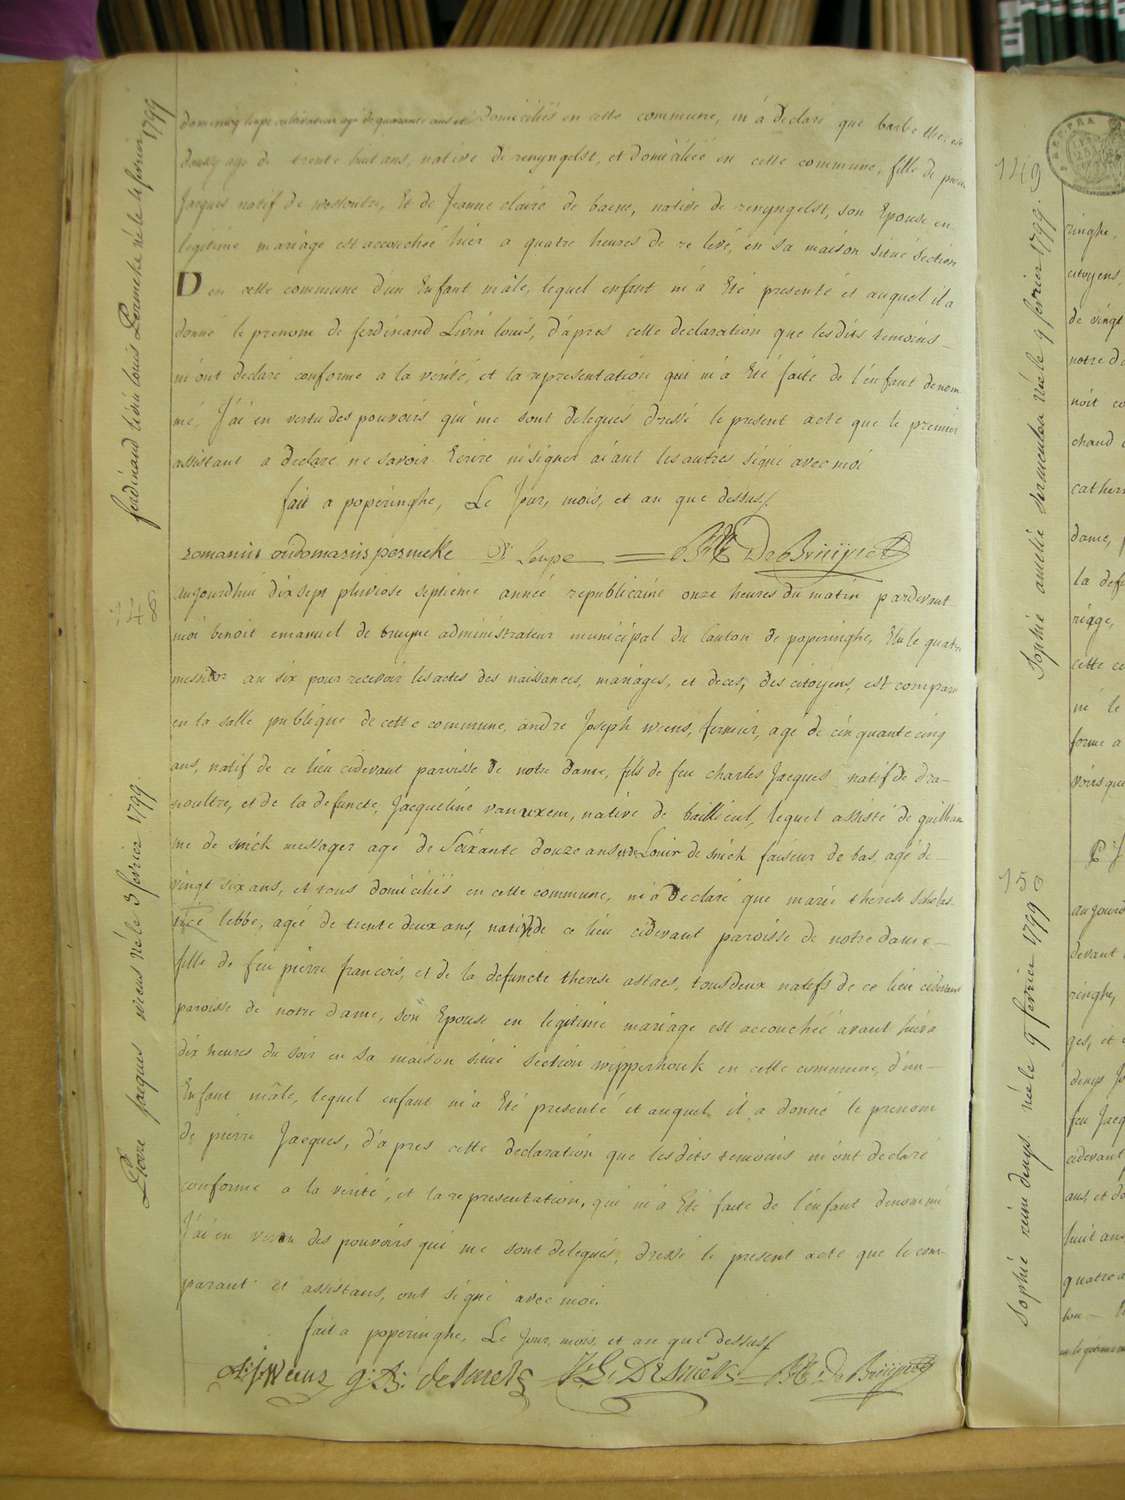 ferdinand liévin louis Permeke né le 4 fevrier 1799
dominicq leupe cultivateur agé de quarante ans et domiciliés en cette commune, m'a déclaré que barbe therese
agé de trente huit ans, native de renyngelst, et domiciliée en cette commune, fille de pierre
Jacques natif de westoutre, Et de Jeanne claire de baene, native de renyngelst, son Epouse en
legitime mariage est accouchée hier a quatre heures de relevé, en sa maison situé section
D en cette commune d'un Enfant mâle, lequel enfant m'a Eté presenté et auquel il a
donné le prenom de ferdinand Livin louis, d'apres cette declaration que les dits temoins
m'ont declaré conforme a la verité, et la representation qui m'a Eté faite de l'enfant denom
mé, J'ai en vertu des pouvoirs qui me sont delegués dressé le present acte que le premier
assistant a declaré ne savoir Ecrire ni signer aiant les autres signé avec moi
fait a poperinghe, Le Jour, mois, et an que dessus
romanus oudomarus permeke D Leupe BE DeBruyne
148
Pierre jacques wieus né le 3 fevrier 1799.
aujourdhui dix sept pluviose septieme année republicaine onze heures du matin pardevant
moi benoit emanuel de bruyne administrateur municipal du Canton de poperinghe, Elu le quatre
messidor an six pour recevoir les actes des naissances, mariages, et deces, des citoyens, est comparu
en la salle publique de cette commune, andre Joseph wieus, fermier, agé de cinquante cinq
ans, natif de ce lieu cidevant paroisse de notre dame, fils de feu charles Jacques natif de dra-
noultre, et de la defuncte, Jacqueline vanuxem, native de bailleul, lequel assisté de guillau
me de smick messager agé de Soixante douze ans et Louis de smick faiseur de bas, agé de
vingt six ans, et tous domiciliés en cette commune, m'a Declaré que marie therese scholas
tice lebbe, agée de trente deux ans, native de ce lieu cidevant paroisse de notre dame
fille de feu pierre francois, et de la defuncte therese assaes, tous deux natifs de ce lieu cidevant
paroisse de notre dame, son Epouse en legitime mariage est accouchée avant hier a
dix heures du soir en sa maison situé section wipperhouk en cette commune, d'un
Enfant mâle, lequel enfant m'a Eté presenté et auquel il a donné le prenom
de pierre Jacques, d'apres cette declaration que les dits temoins m'ont declaré
conforme a la verité, et la representation, qui m'a Eté faite de l'enfant denommé
J'ai en vertu des pouvoirs qui me sont delegués, dressé le present acte que le com-
parant et assistans, ont signé avec moi.
fait a poperinghe, Le Jour, mois, et an que dessus
BE DeBruyne
149
Sophie amélie née le 9 fevrier 1799.
ringhe,
citoyens,
de vingt
notre d
noit co
chaud
cather
dame,
la def
regge,
cette co
né le
forme a
voirs que
150
Sophie denys née le 9 fevrier 1799
aujourd
devant
ringhe,
ges, et
denys Jo
feu Jacq
cidevant
ans, et do
huit an
quatre a